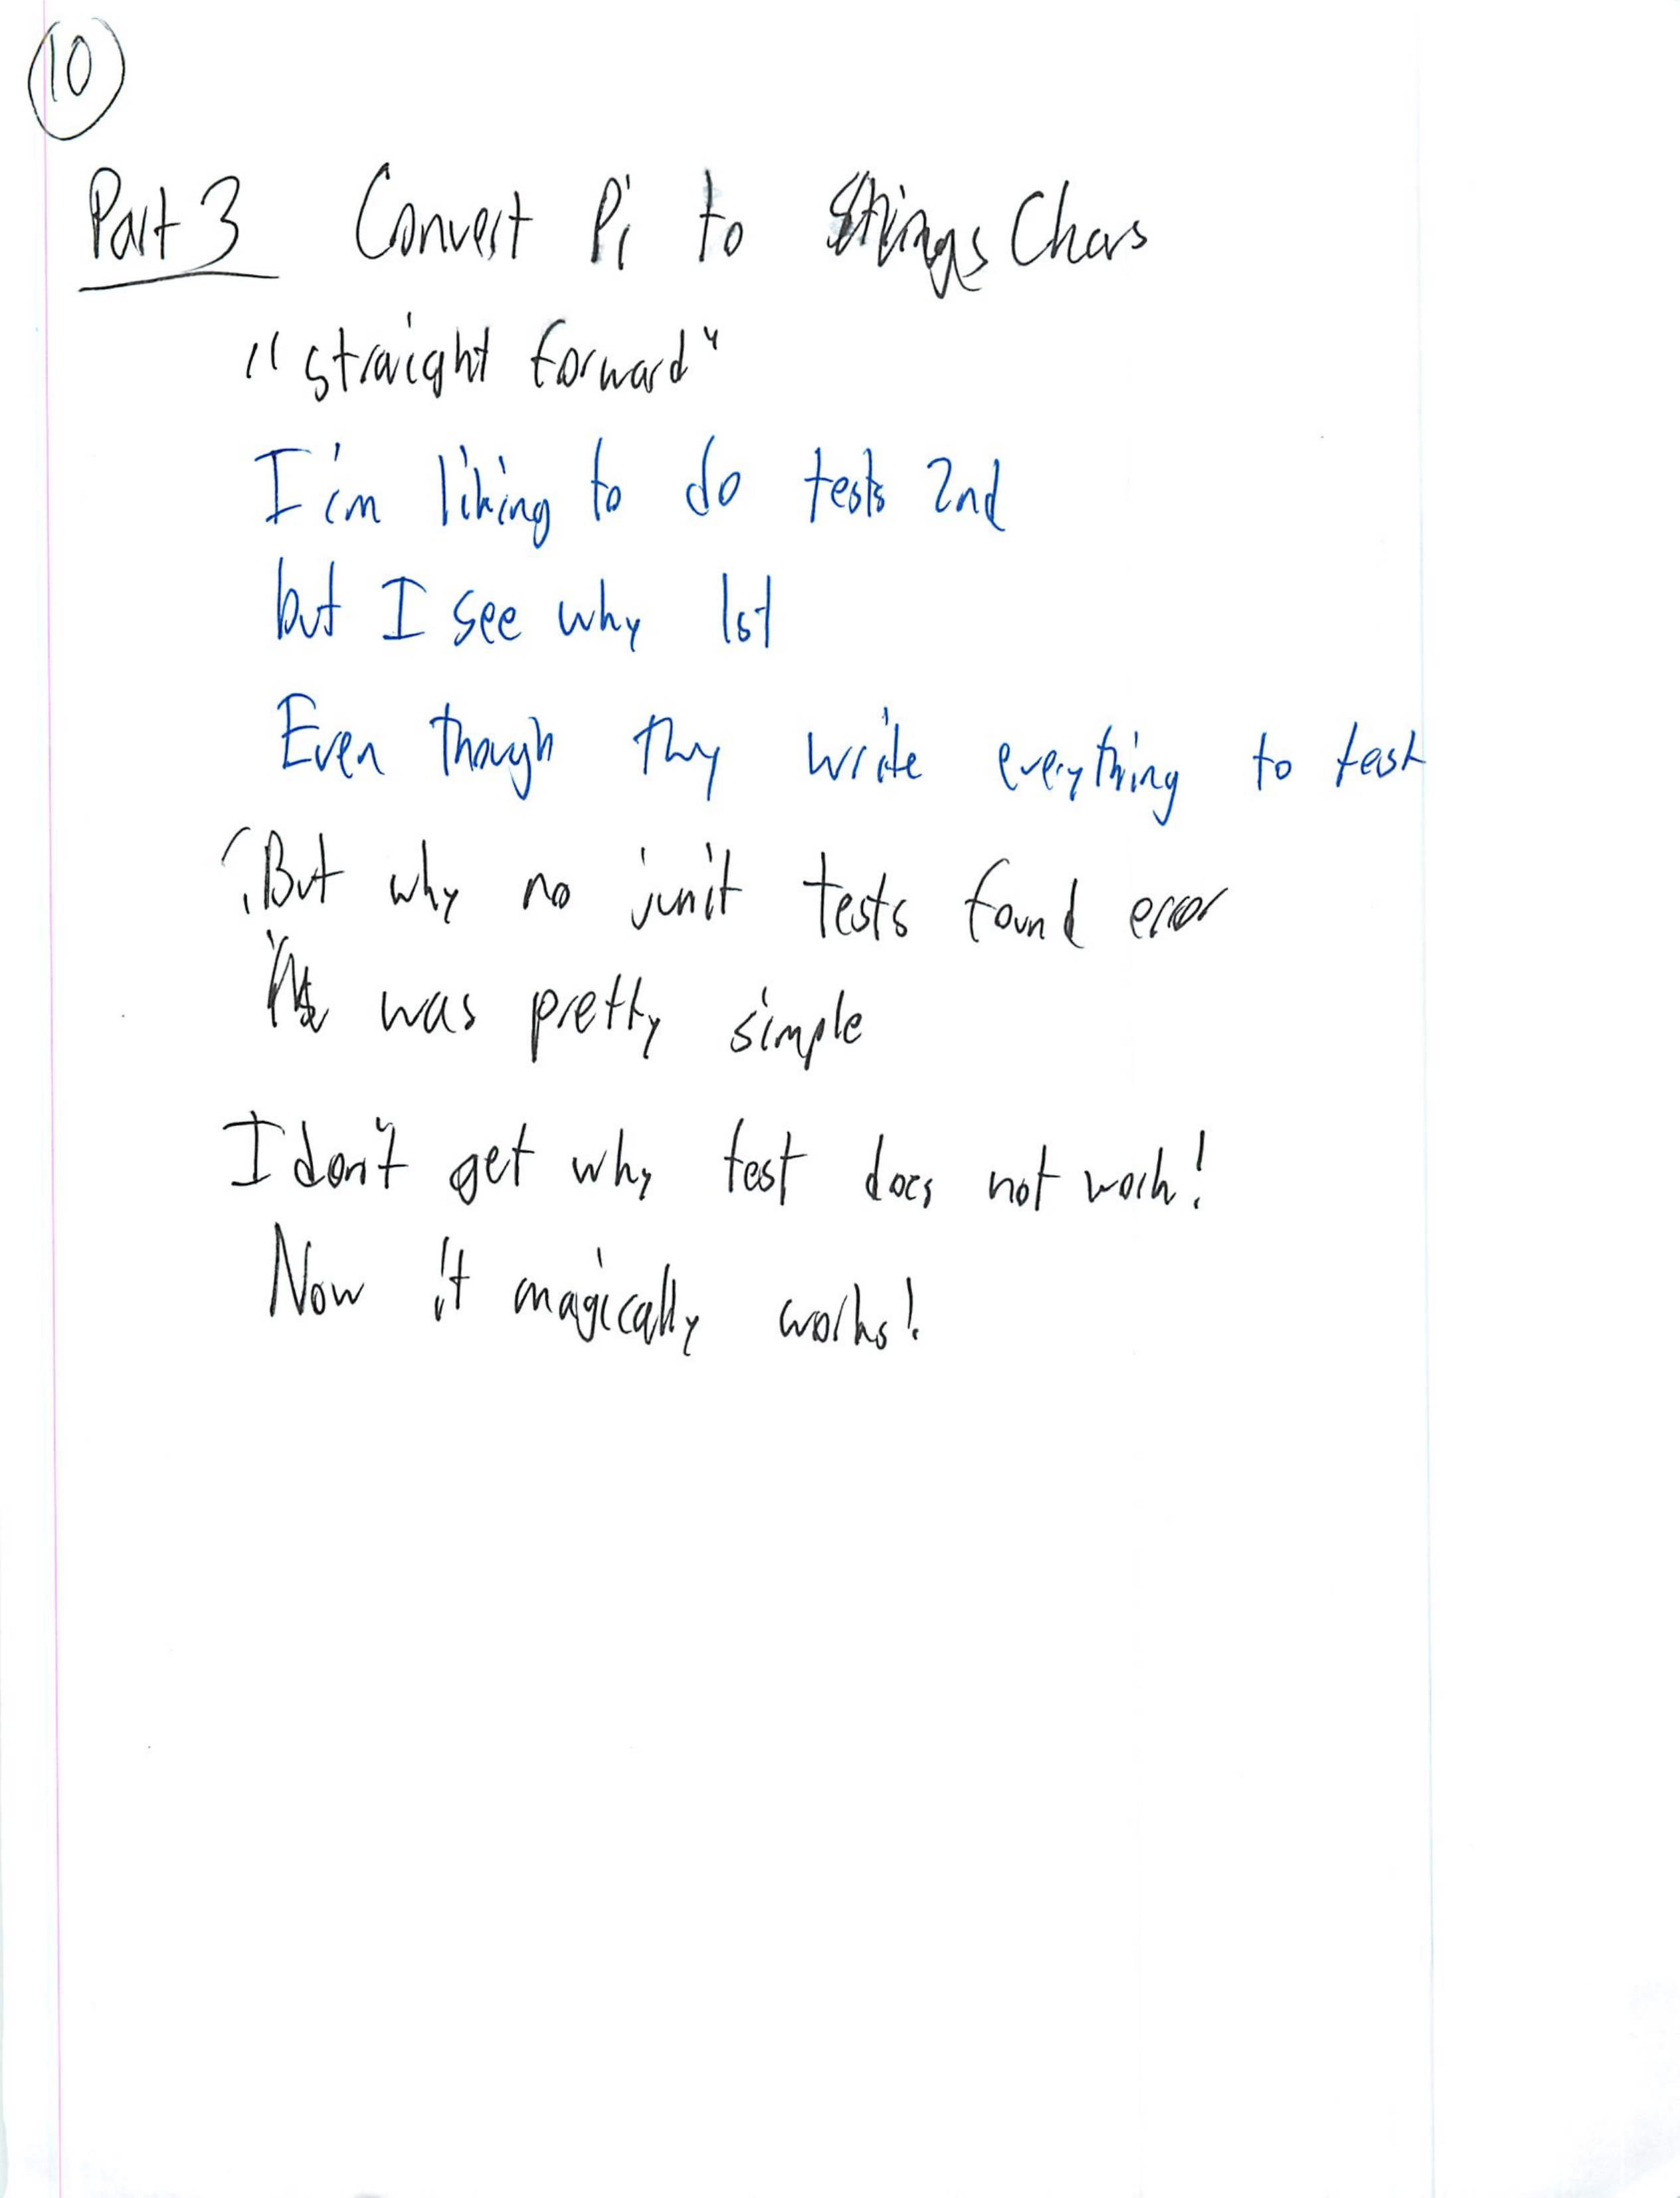 10
Part 3 Convert Pi to Strings Chars
"straight forward"
I'm liking to do tests 2nd
but I see why 1st
Even though thy write everything to test
But why no junit tests found error
was pretty simple
I don't get why test does not work!
Now it magically works!